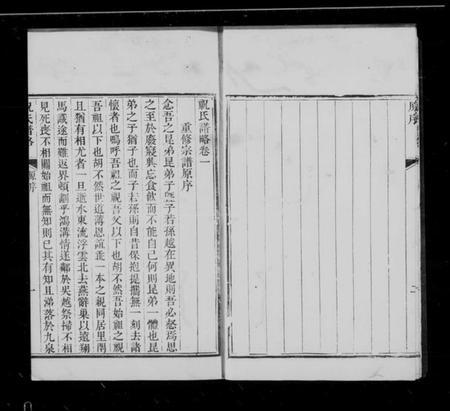 祝氏譜略卷一
重修宗譜原序
念吾之昆弟昆弟之子若孫越在異地則吾必愀焉思
之至於廢寢興忘食飲而不能自已何則昆弟一體也昆
弟之子猶子也而子若孫則自昔保抱提攜無一刻去諸
懷者也嗚呼吾祖之視吾父以下也胡不然吾始祖之視
吾祖以下也胡不然世道薄恩誼乖一本之親同居里閈
且猶有相尤者一旦逝水東流浮雲北去燕辭巢以遠翔
馬識途而難返界頓劃乎鴻溝情遂鄰於吳越祭掃不相
見死喪不相關始祖而無知則已其有知且涕落於九泉
祝氏譜略
原序
一
原序